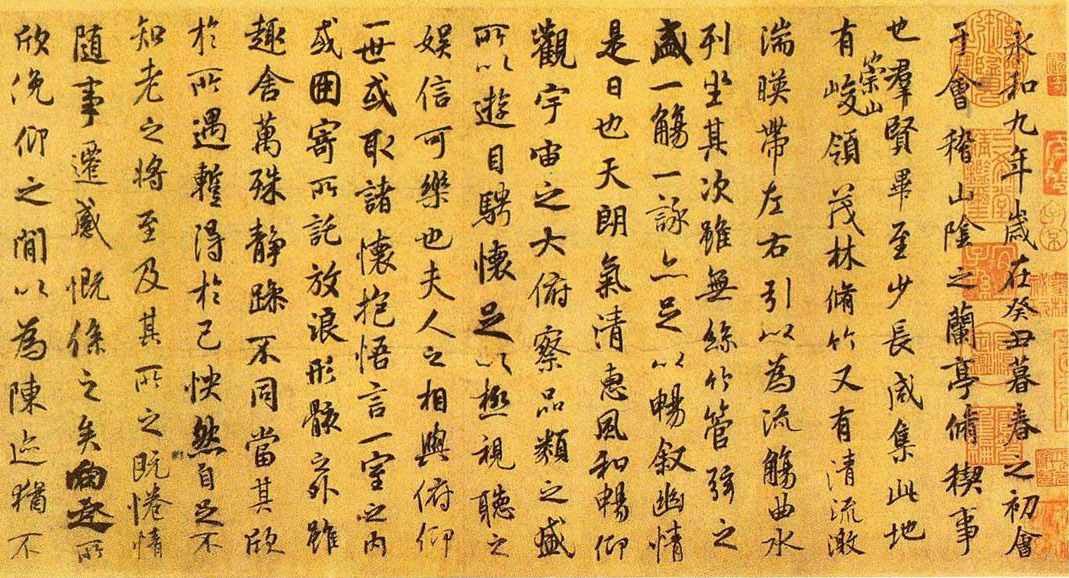 永和九年歲在癸丑暮春之初會
于會稽山陰之蘭亭脩稧事
也羣賢畢至少長咸集此地
有崇山峻領茂林脩竹又有清流激
湍暎帶左右引以為流觴曲水
列坐其次雖無絲竹管弦之
盛一觴一詠亦足以暢敘幽情
是日也天朗氣清惠風和暢仰
觀宇宙之大俯察品類之盛
所以遊目騁懷足以極視聽之
娛信可樂也夫人之相與俯仰
一世或取諸懷抱悟言一室之內
或因寄所託放浪形骸之外雖
趣舍萬殊靜躁不同當其欣
於所遇蹔得於己怏然自足不
知老之將至及其所之既惓情
隨事遷感慨係之矣向之所
欣俛仰之閒以為陳迹猶不